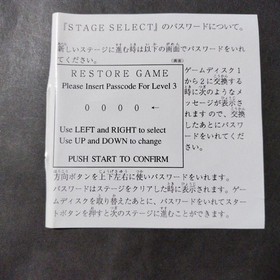 『STAGE SELECT』のパスワードについて。
新しいステージに進む時は以下の画面でパスワードをいれ
てください。
RESTORE GAME
Please Insert Passcode For Level 3
0 0 0 0 ←
Use LEFT and RIGHT to select
Use UP and DOWN to change
PUSH START TO CONFIRM
ゲームディスク1
から2に交換する
時に次のようなメ
ッセージが表示さ
れますので、交換
したあとにパスワ
ードをいれてくだ
さい。
方向ボタンを上下左右に使いパスワードをいれます。
パスワードはステージをクリアした時に表示されます。ゲー
ムディスクを取り替えたあとに、パスワードをいれてスター
トボタンを押すと次のステージに進むことができます。